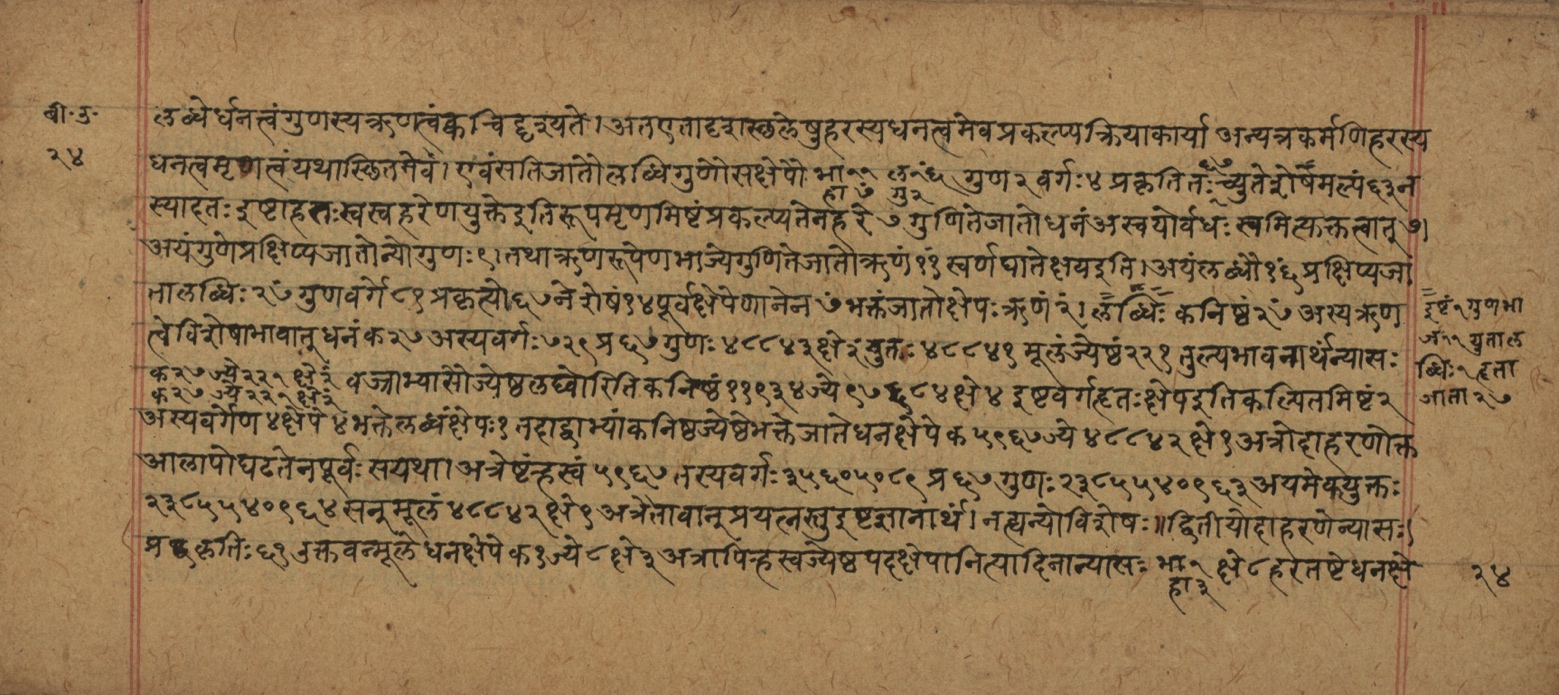 बी॰ उ॰
२४
लब्धेर्धनत्वंगुणस्यऋणत्वंक्वचिद्दृश्यते। अतएतादृशस्छलेषुहरस्यधनत्वमेवप्रकल्प्यक्रियाकार्या अन्यत्रकर्मणिहरस्य
धनत्वमृणत्वंयथास्छितमेवं। एवंसतिजातौलब्धिगुणौसक्षेपौ भा १ ल १ं६ गुण २ वर्गः ४ प्रकृतितः च्युतेशेषमल्पं ६३ न
हा ७ं गु २
स्यादतः इष्टाहतःस्वस्वहरेणयुक्तेइतिरूपमृणमिष्टंप्रकल्प्यतेनहरे ७ गुणितेजातोधनंअस्वयोर्वधः स्वमित्युक्तत्वात् ७।
अयंगुणेप्रक्षिप्यजातोन्योगुणः ९। तथाऋणरूपेणभाज्येगुणितेजातोऋणं ११ स्वर्णघातेक्षयइति। अयंलब्धौ १ं६ प्रक्षिप्यजा
तालब्धिः २७ं गुणवर्गे ८१ प्रकृत्यो ६७ ने शेषं १४ पूर्वक्षेपेणानेन ७ं भक्तंजातोक्षेपः ऋणं २ं। लब्धिः कनिष्ठं २७ं अस्यऋण
त्वेविशेषाभावात् धनंक २७ अस्यवर्गः ७२९ प्र ६७ गुणः ४८८४३ क्षे २ं युतः ४८८४१ मूलंज्येष्ठं २२१ तुल्यभावनार्थंन्यासः
क २७ ज्ये २२१ क्षे २ं
क २७ ज्ये २२१ क्षे २ं
वज्राभ्यासौज्येष्ठलघ्वोरितिकनिष्ठं ११९३४ ज्ये ९७६८४ क्षे ४ इष्टवर्गहृतःक्षेपइतिकल्पितमिष्टं २
अस्यवर्गेण ४ क्षेपे ४ भक्तेलब्धंक्षेपः १ तदाद्वाभ्यांकनिष्ठज्येष्ठेभक्तेजातेधनक्षेपे क ५९६७ ज्ये ४८८४२ क्षे १ अत्रोदाहरणोक्त
आलापोघटतेनपूर्वः सयथा। अत्रेष्टंह्रस्वं ५९६७ तस्यवर्गः ३५६०५०८९ प्र ६७ गुणः २३८५५४०९६३ अयमेकयुक्तः
२३८५५४०९६४ सन्मूलं ४८८४२ क्षे १ अत्रैतावान्प्रयत्नस्तुइष्टज्ञानार्थं। नत्वन्योविशेषः॥ द्वितीयोदाहरणेन्यासः।
प्रकृतिः ६१ उक्तवन्मूले धनक्षेपे क १ ज्ये ८ क्षे ३ अत्रापिह्रस्वज्येष्ठपदक्षेपानित्यादिनान्यासः भा १ क्षे ८ हरतष्टेधनक्षे
हा ३
इष्टं १ गुणभा
११ युताल
ब्धिः हृता
जाता २७
२४